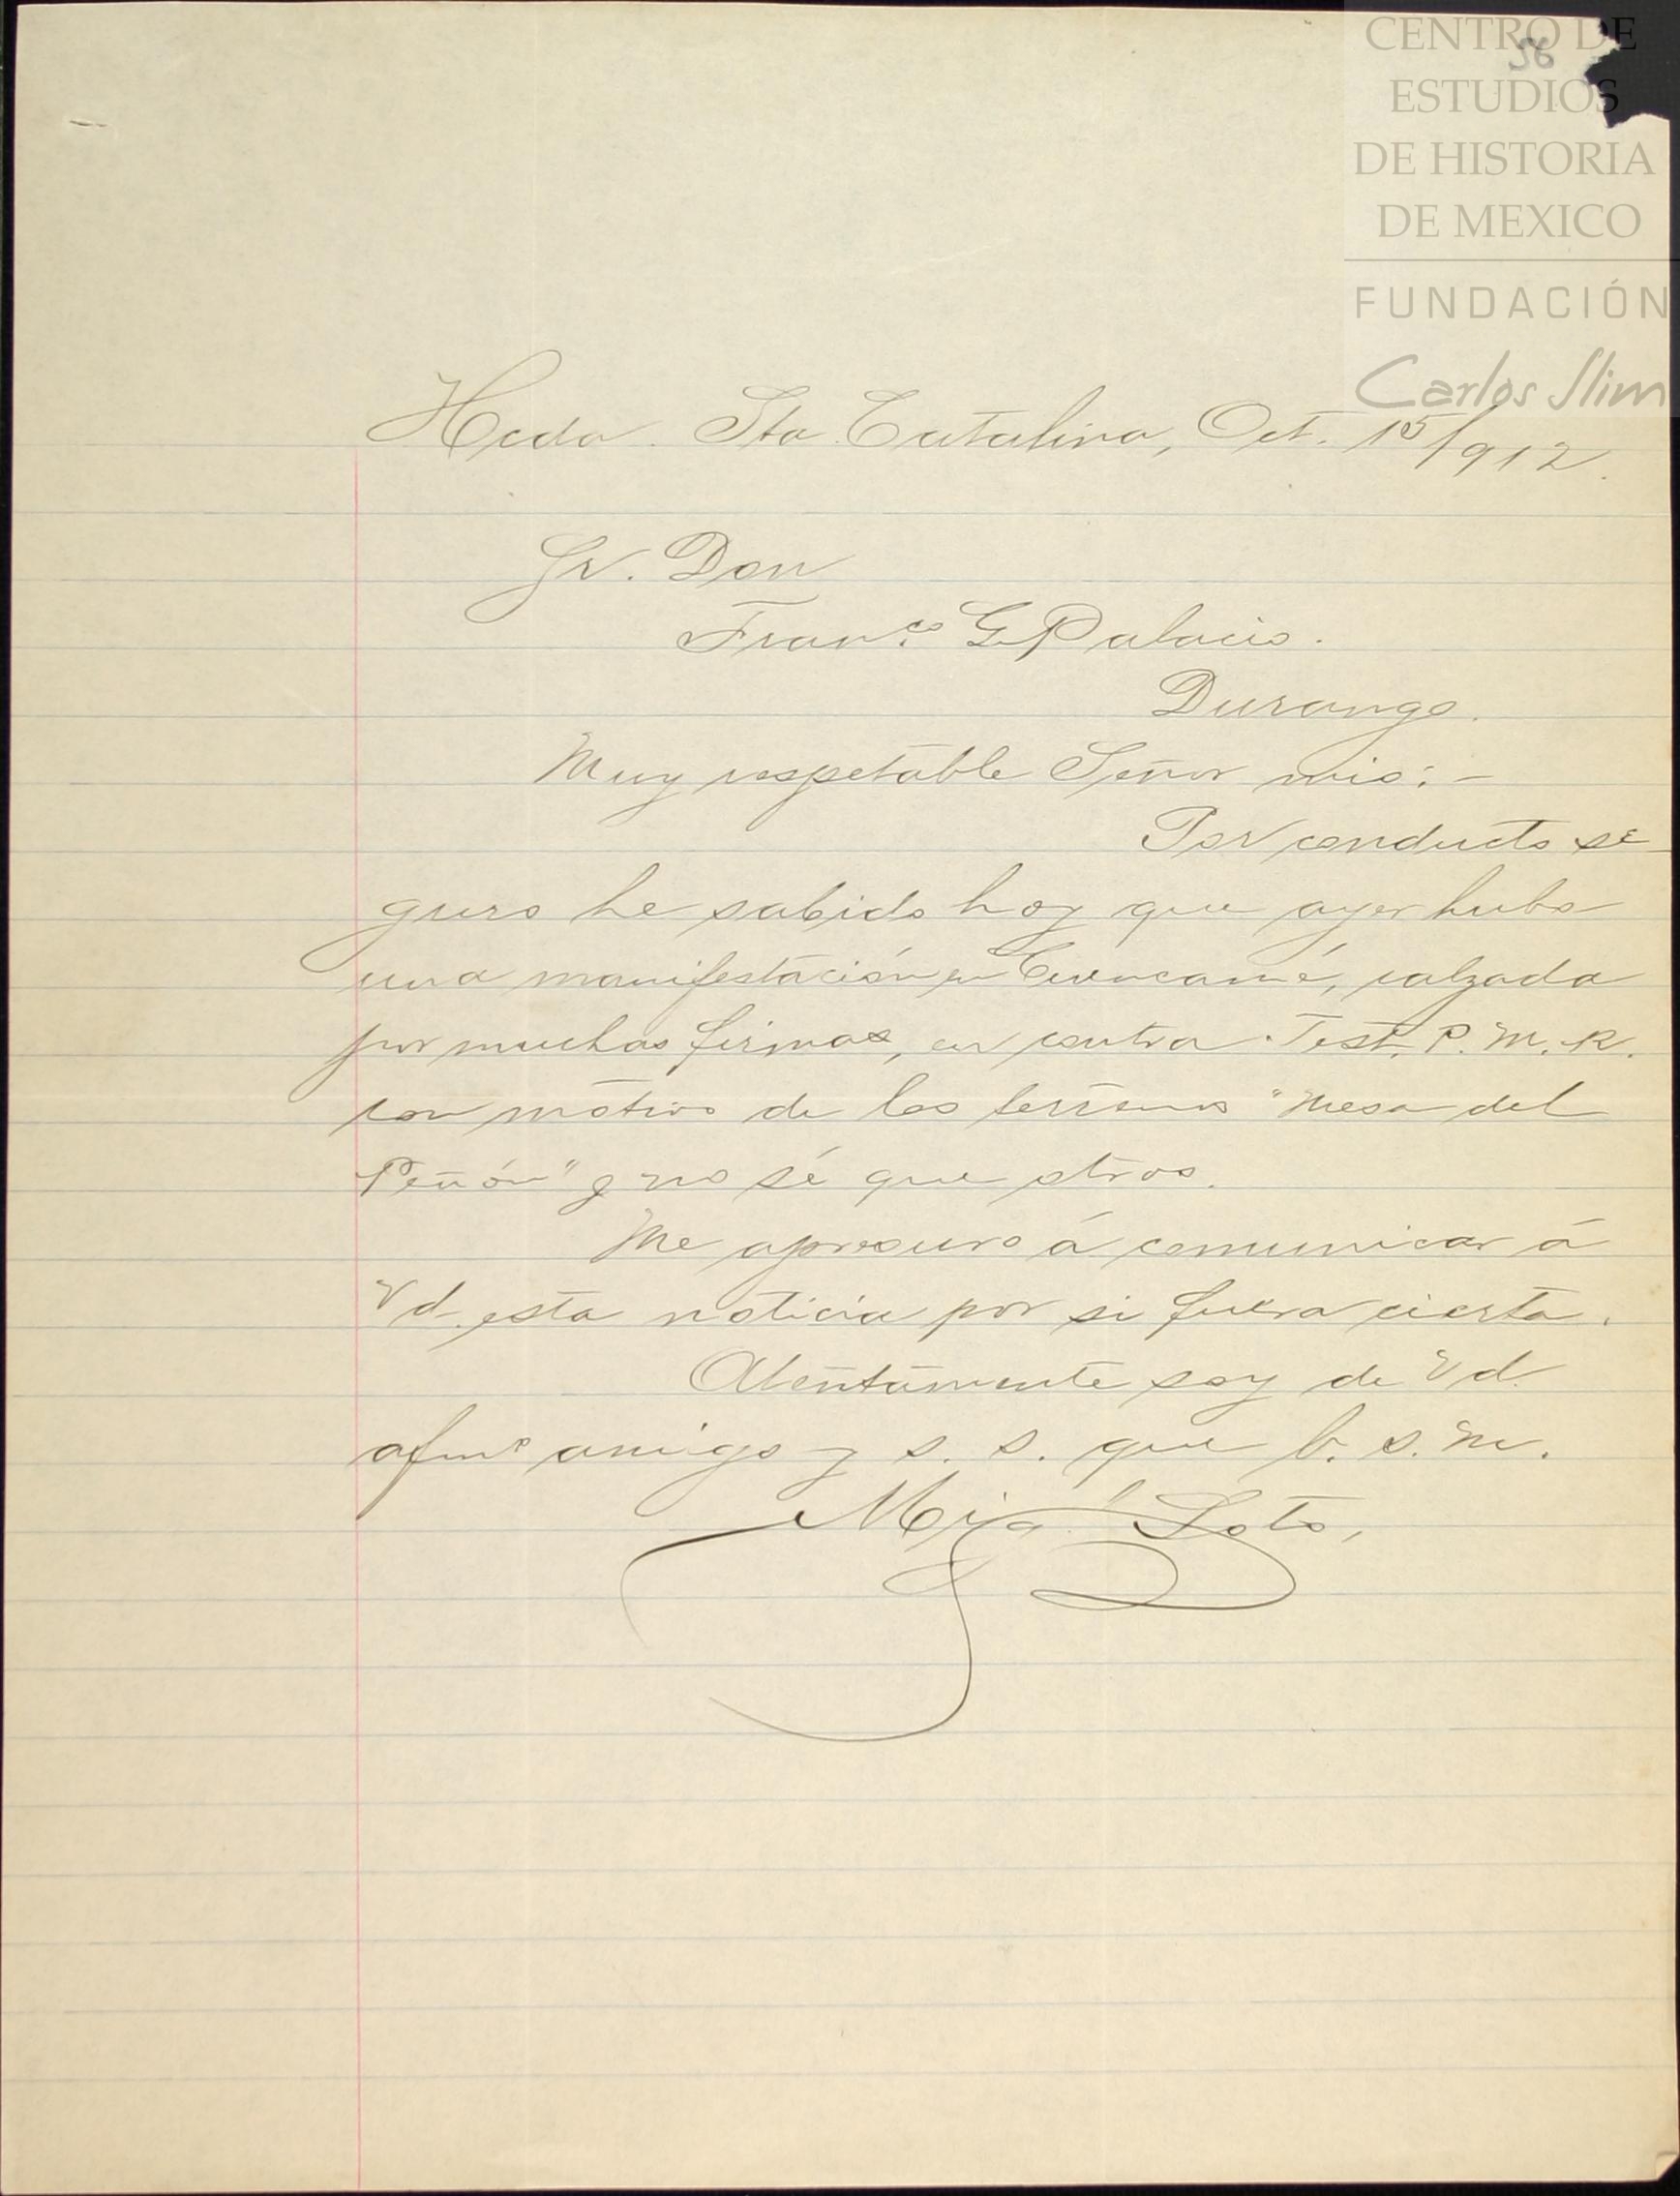 CENTRO DE
56
ESTUDIOS
DE HISTORIA
DE MEXICO
FUNDACIÓN
Carlos Slim
Hcda. Sta Catalina, Oct. 15/912.
Sr. Don
Franco. G. Palacio.
Durango.
Muy respetable Señor mio: -
Por conducto se-
guro he sabido hoy que ayer hubo
una manifestación en Cuencamé, calzada
por muchas firmas, en contra Test. P. M. R.
con motivo de los terrenos "Mesa del
Peñón" y no sé que otros.
Me apresuro á comunicar á
Vd. esta noticia por si fuera cierta.
Atentamente soy de Vd.
afmo amigo y s. s. que b. s. m.
Soto,